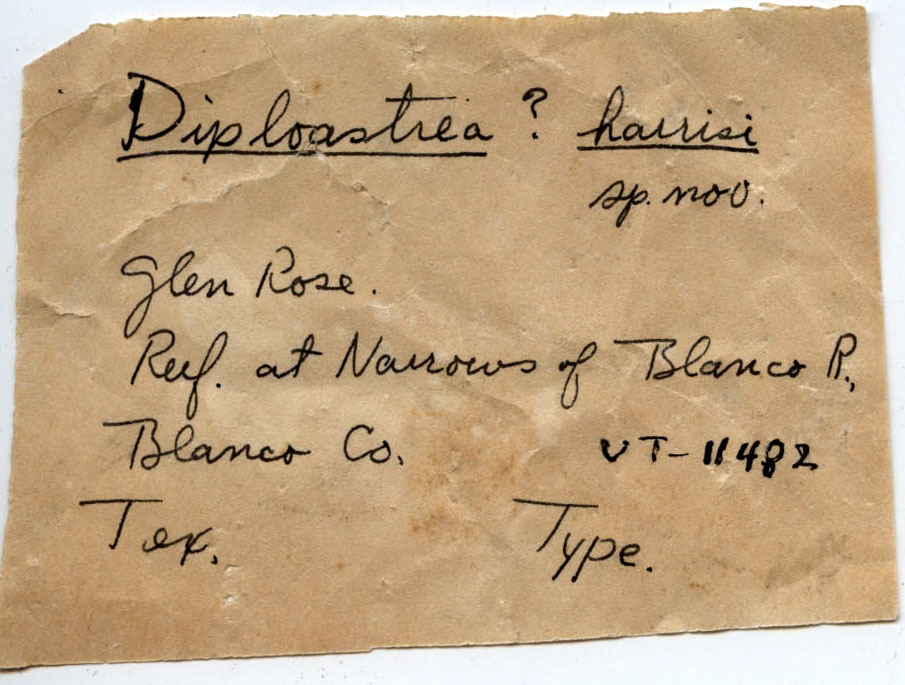 Diploastrea ? harrisi
sp. nov.
Glen Rose.
Reef. at Narrows of Blanco R.,
Blanco Co. UT-11482
Tex. Type.